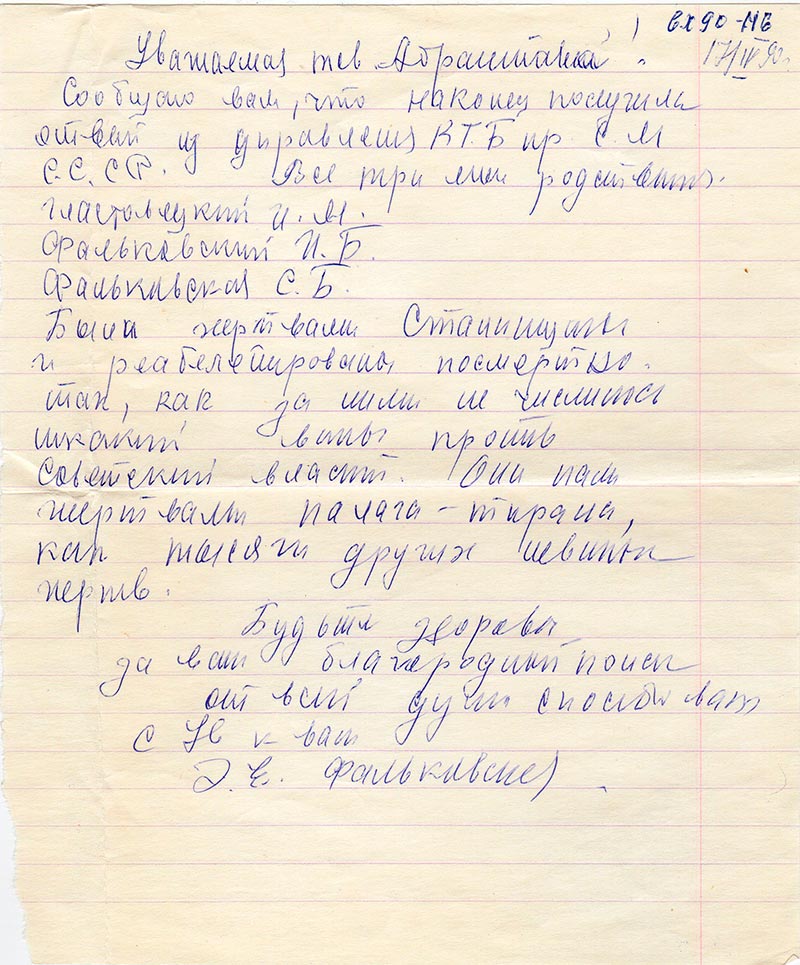 вх 90-НБ
17/IV 90г.
Уважаемая тов !
Сообщаю вам, что наконец получила
ответ из управления КГБ пр. С. М
С.С.СР. Все три мои родствен.
И. М.
Фальковский И. Б.
Фальковская С. Б.
Были жертвами Сталинщины
и реабелетированы посмертно.
так, как за ними не числилось
никакий вины проть
советский власти. Они пали
жертвами палага-тирана,
как тысячи других невиных
жертв.
Будьте здоровы
за ваш благородный поиск
от всей души спосибо вам
с Ув к вам
Фальковская.